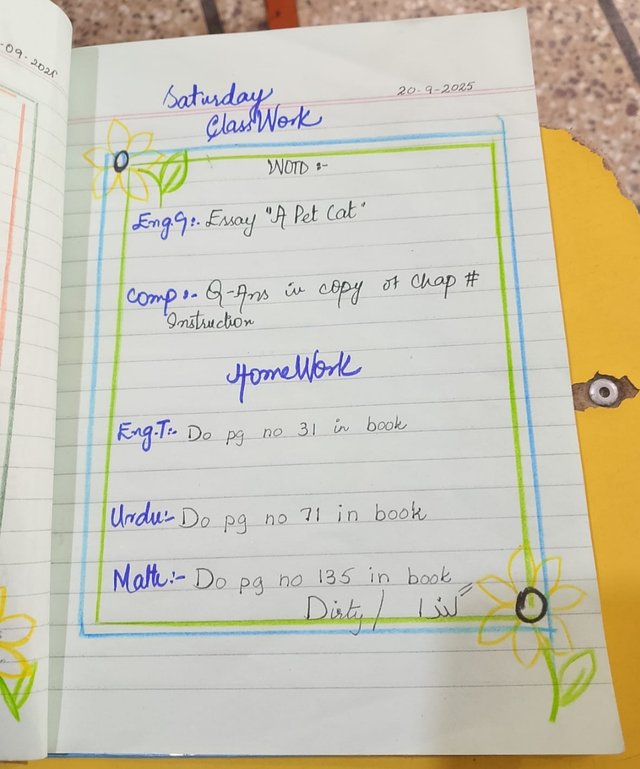 -09-2025
Saturday
20-9-2025
Class Work
WOTD :-
Eng.G:- Essay "A Pet Cat"
Comp:- Q-Ans in copy of Chap #
Instruction
HomeWork
Eng.T:- Do pg no 31 in book
Urdu:- Do pg no 71 in book
Math:- Do pg no 135 in book
Dirty / گندا